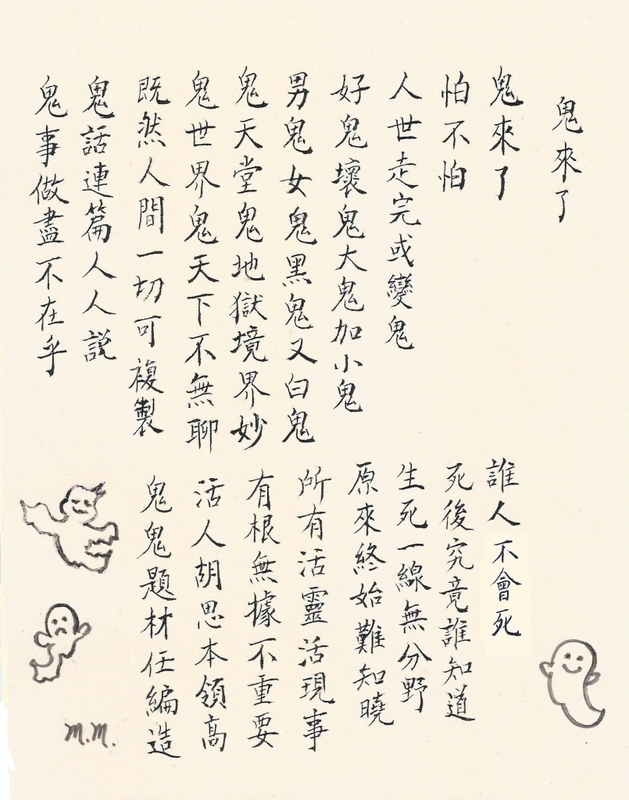 鬼來了
鬼來了
怕不怕
人世走完或變鬼
好鬼壞鬼大鬼加小鬼
男鬼女鬼黑鬼又白鬼
鬼天堂鬼地獄境界妙
鬼世界鬼天下不無聊
既然人間一切可複製
鬼話連篇人人説
鬼事做盡不在乎
誰人不會死
死後究竟誰知道
生死一線無分野
原來終始難知曉
所有活靈活現事
有根無據不重要
活人胡思本領高
鬼鬼題材任編造
m.m.